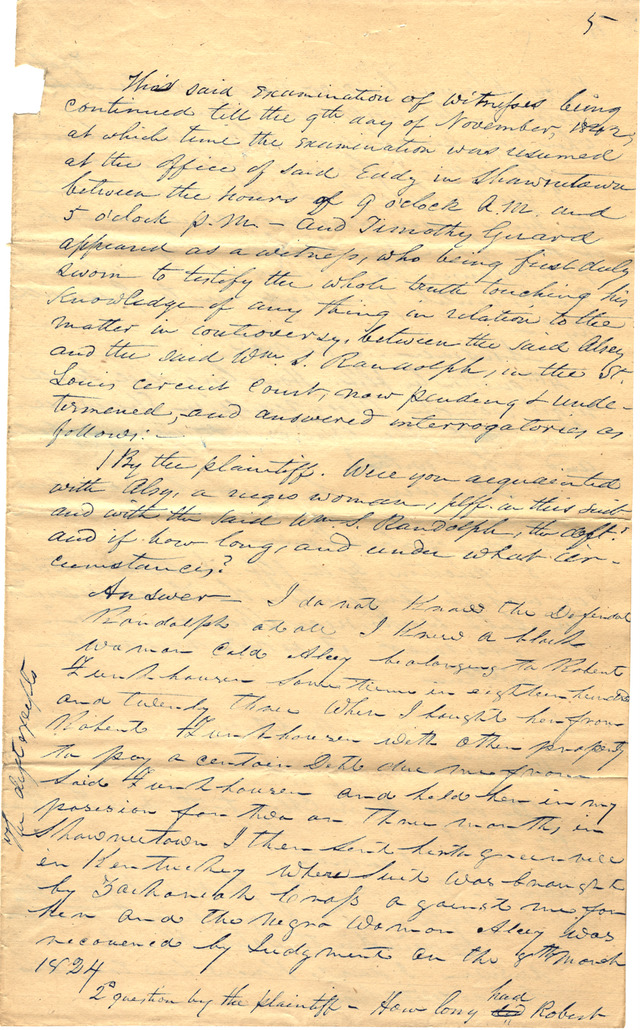 5
This said examination of witnesses being
continued till the 9th day of November, 1842,
at which time the examination was resumed
at the office of said Eddy in Shawnetown
between the hours of 9 o'clock A.M. and
5 o'clock p.m. - and Timothy Guard
appeared as a witness, who being first duly
sworn to testify the whole truth touching his
knowledge of any thing in relation to the
matter in controversy, between the said Alsey
and the said Wm. S. Randolph, in the St.
Louis circuit court, now pending & unde-
termened, and answered interrogatories as
follows: -
1 By the plaintiff. Were you acquainted
with Alsy, a negro woman, plff in this suit
and with the said Wm S. Randolph, the deft.
and if how long, and under what cir-
cumstances?
Answer - I do not Know the Defendat
Randolph at all I Knew a black
woman Cald Alsey bealonging to Robert
Funkhouser some time in eighteen hundred
and twendy three When I bought her from
Robert Funkhouser with other property
to pay a certain Debt due me from
Said Funkhouser and held her in my
posesion for two or Three months, in
Shawneetown I then sent her to greenville
in Kentuckey Where Suit was brought
by Zachariah Cross against me for
her and the negro Woman Alsey was
recovered by Judgment on the 8th March
1824
2d question by the plaintiff - How long had Robert
deft excepts